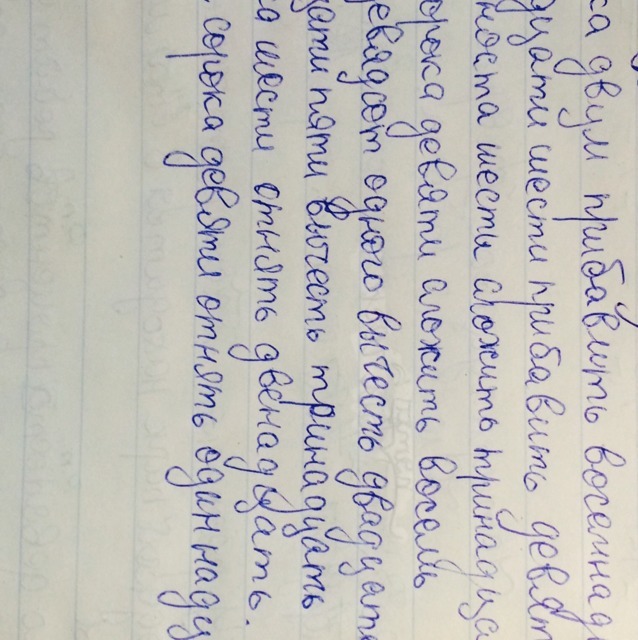 ка двум прибавить восемнад
дцати шести прибавить девят
носта шести сложить тринадца
орока девяти сложить восемь
девяност одного вычесть двадцать
дцати пяти вычесть тринадцать
ка шести отнять двенадцать.
сорока девяти отнять одиннадц